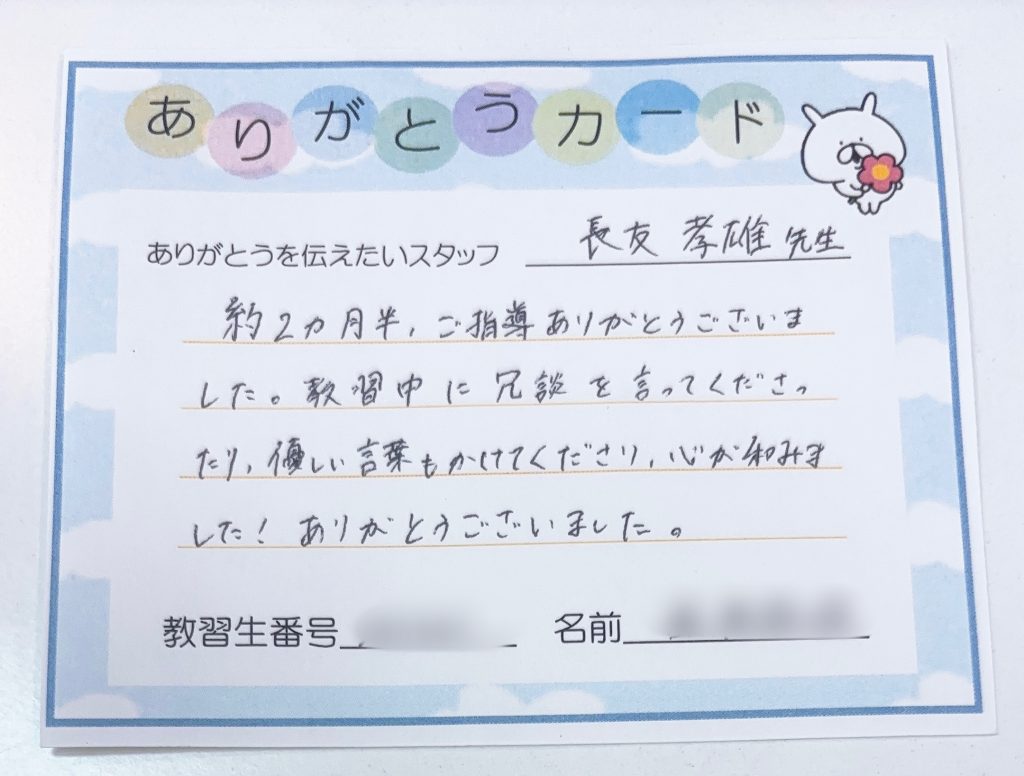 ありがとうカード
ありがとうを伝えたいスタッフ 長友 孝雄 先生
約2カ月半、ご指導ありがとうございま
した。教習中に冗談を言ってくださっ
たり、優しい言葉もかけてくださり、心が和みま
した！ありがとうございました。
教習生番号 名前